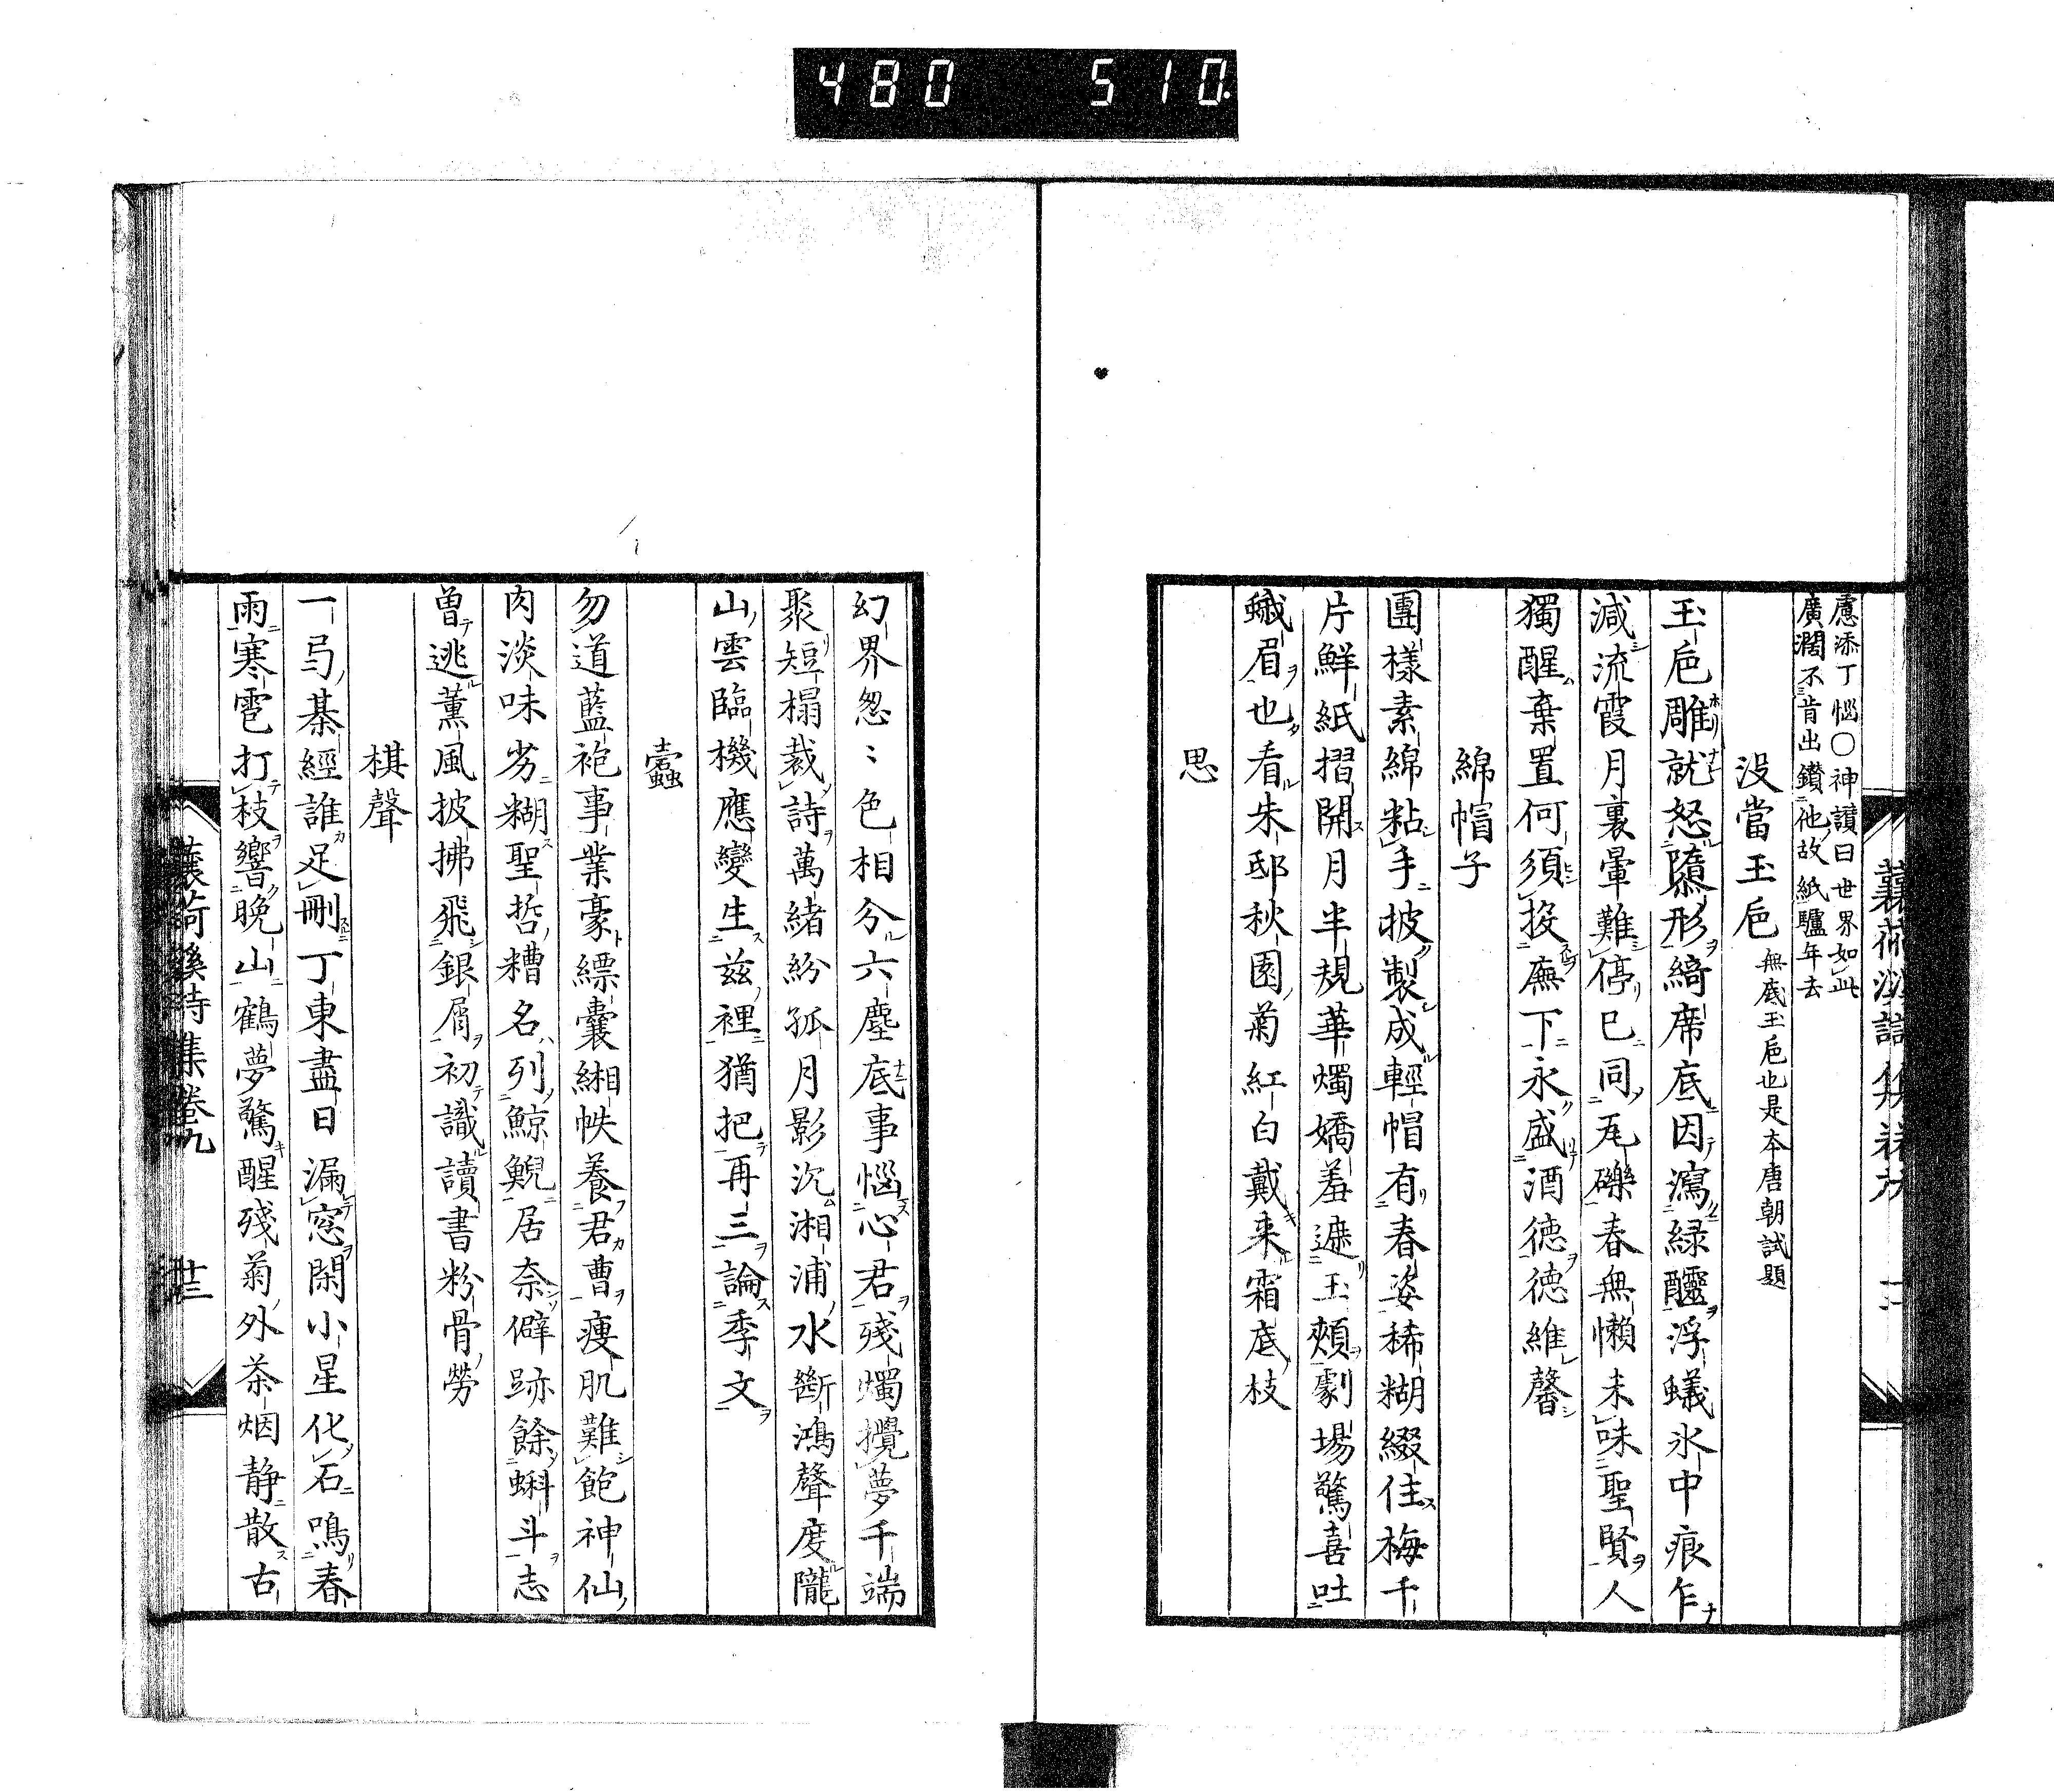 480 510.
慮添丁惱○神讃曰世界如此
廣濶不肯出鑽他故紙驢年去
没當玉巵 無底玉巵也是本唐朝試題
玉巵雕就怒隳形綺席底因瀉緑醽浮蟻氷中痕乍
減流霞月裏暈難停已同瓦礫春無懶未味聖賢人
獨醒棄置何須投廡下永盛酒徳徳維馨
綿帽子
團樣素綿粘手披製成輕帽有春姿稀糊綴住梅千
片鮮紙摺開月半規華燭嬌羞遮玉頰劇場驚喜吐
蛾眉也看朱邸秋園菊紅白戴来霜底枝
思
幻界怱〻色相分六塵底事惱心君殘燭攪夢千端
聚短榻裁詩萬緒紛孤月影沉湘浦水斷鴻聲度隴
山雲臨機應變生茲裡猶把再三論季文
蠹
勿道藍袍事業豪縹囊緗帙養君曹痩肌難飽神仙
肉淡味劣糊聖哲糟名列鯨鯢居奈僻跡餘蝌斗志
曽逃薫風披拂飛銀屑初識讀書粉骨勞
棋聲
一局棊經誰足刪丁東盡日漏窓閑小星化石鳴春
雨寒雹打枝響晩山鶴夢驚醒殘菊外茶烟静散古
蘘荷溪詩集巻九 廿三